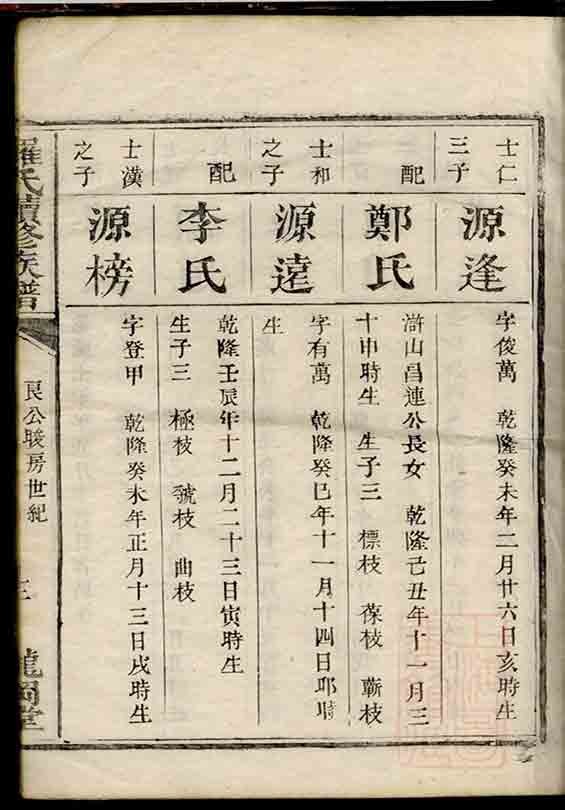 士仁
三子
源逢
字俊萬 乾隆癸未年二月廿六日亥時生
配
鄭氏
滸山昌連公長女 乾隆己丑年十一月三
十申時生 生子三 標枝 葆枝 蘄枝
士和
之子
源逵
字有萬 乾隆癸巳年十一月十四日卯時
生
配
李氏
乾隆壬辰年十二月二十三日寅時生
生子三 極枝 號枝 曲枝
士漢
之子
源榜
字登甲 乾隆癸未年正月十三日戌時生
羅氏續修族譜
良公畯房世紀
三
龍岡堂